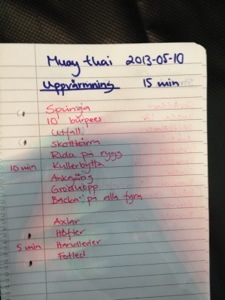 Muay thai 2013-05-10
Uppvärmning 15 min
Springa
10 burpees
Utfall
Skottkärra
Rida på rygg
10 min Kullerbytta
Ankgång
Grodhopp
Backa på alla fyra
Axlar
Höfter
5 min Handleder
Fotled